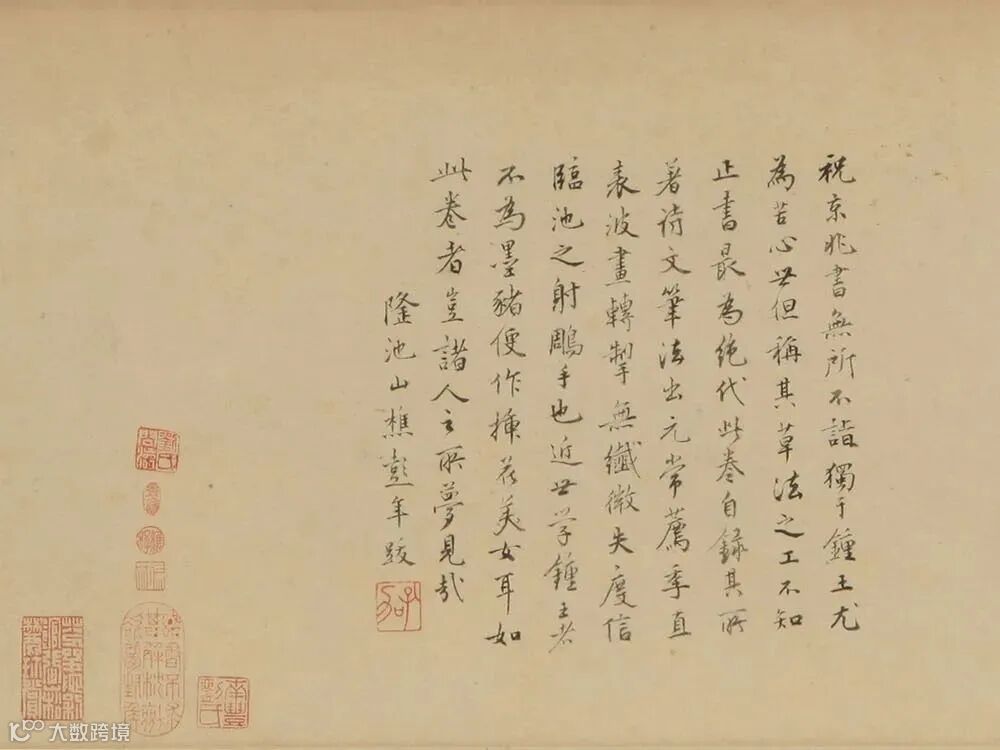 祝京兆書無所不詣獨于鍾王尤
為苦心世但稱其草法之工不知
正書最為絕代此卷自錄其所
著詩文筆法出元常薦季直
表波畫轉掣無纖微失度信
臨池之射鵰手也近世学鍾王者
不為墨豬便作揷花美女耳如
此卷者豈諸人之所夢見哉
隆池山樵彭年跋
大数跨境